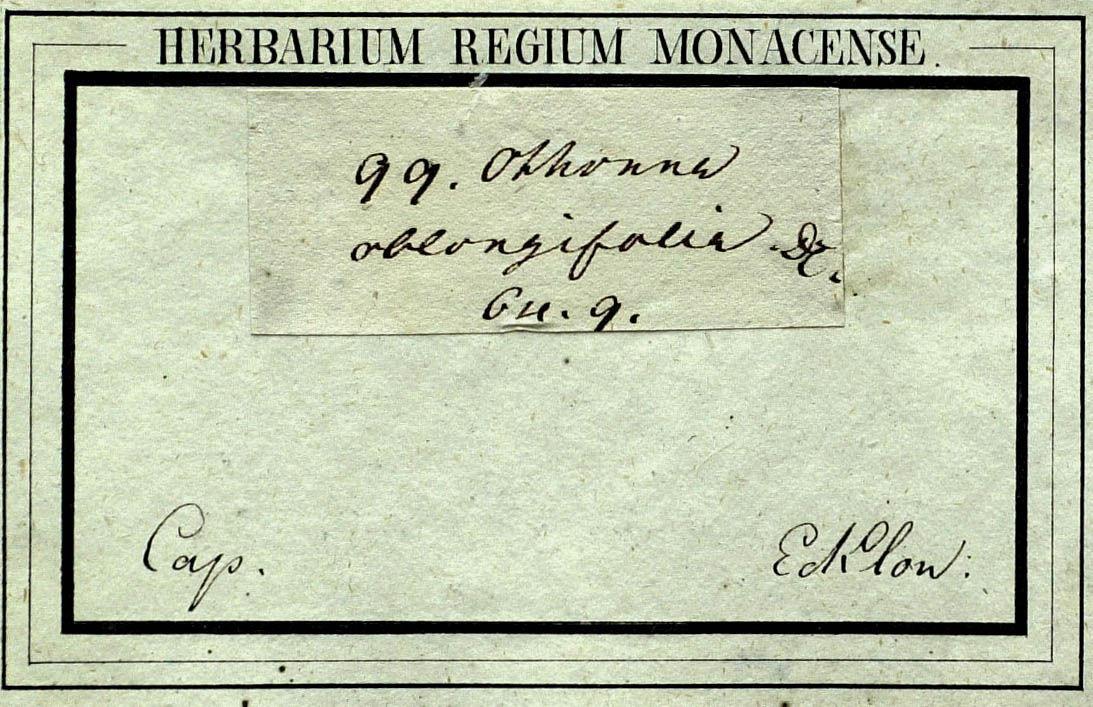 HERBARIUM REGIUM MONACENSE.
99. Othonna
oblongifolia DC.
9.
Cap.
Ecklon.